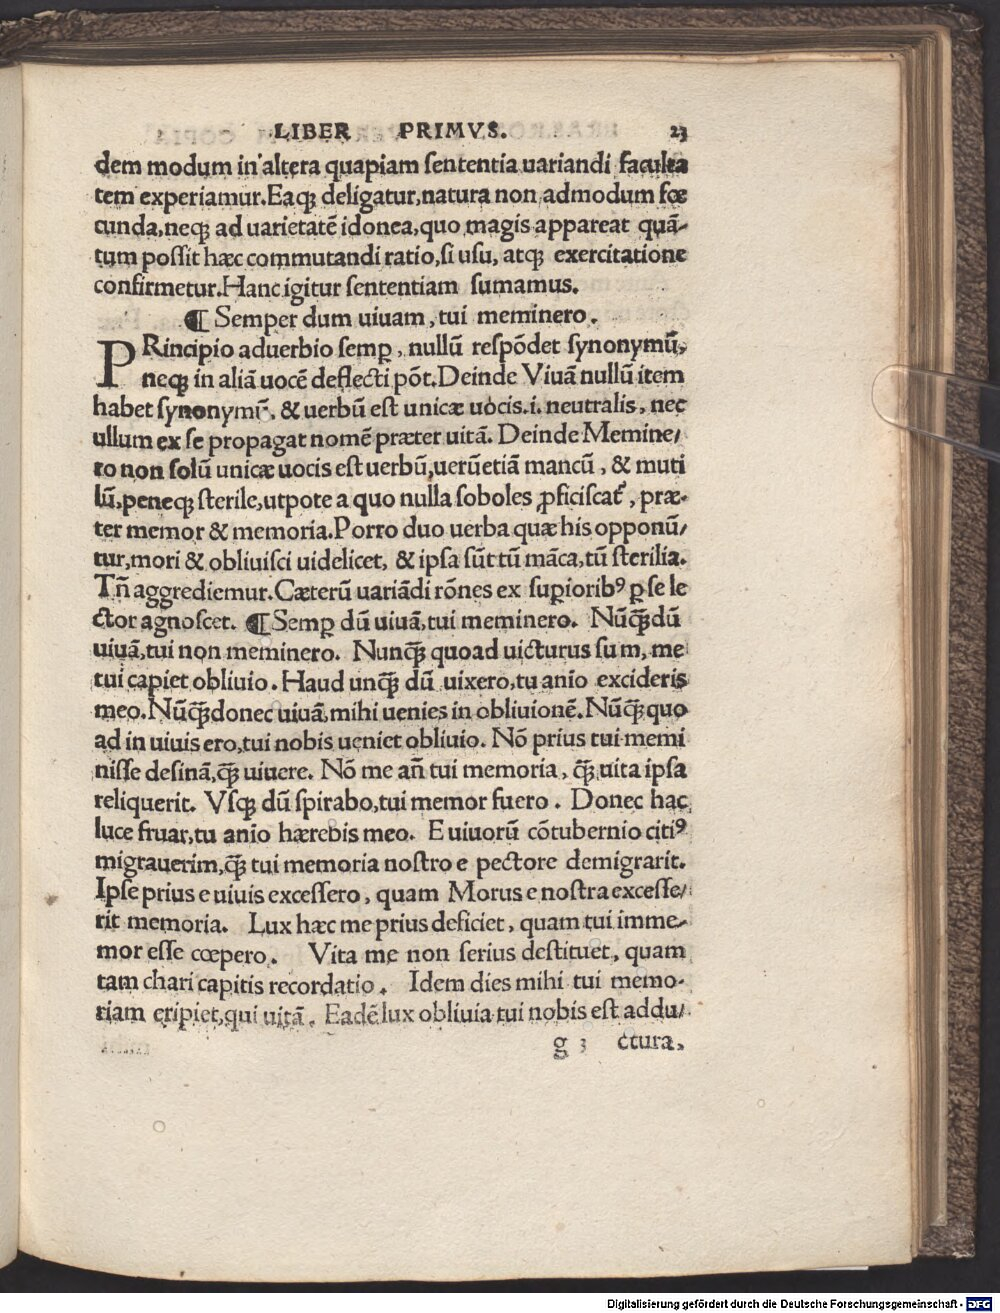 LIBER PRIMVS. 23
dem modum in altera quapiam sententia uariandi faculta
tem experiamur.Eaqꝫ deligatur,natura non admodum fœ
cunda,neqꝫ ad uarietatē idonea,quo magis appareat quā-
tum possit hæc commutandi ratio,si usu, atqꝫ exercitatione
confirmetur.Hanc igitur sententiam sumamus.
¶ Semper dum uiuam, tui meminero.
PRincipio aduerbio semꝑ, nullū respōdet synonymū,
neqꝫ in aliā uocē deflecti pōt.Deinde Viuā nullū item
habet synonymū, & uerbū est unicæ uocis.i. neutralis, nec
ullum ex se propagat nomē præter uitā. Deinde Memine/
ro non solū unicæ uocis est uerbū,uerūetiā mancū, & muti
lū,peneqꝫ sterile,utpote a quo nulla soboles ꝓficiscat᷑, præ-
ter memor & memoria.Porro duo uerba quæ his opponū/
tur,mori & obliuisci uidelicet, & ipsa sūt tū māca,tū sterilia.
Tñ aggrediemur.Cæterū uariādi rōnes ex suꝑioribꝰ ꝑ se le
ctor agnoscet. ¶ Semꝑ dū uiuā,tui meminero. Nūqꝫ̄ dū
uiuā,tui non meminero. Nunqꝫ̄ quoad uicturus sum, me
tui capiet obliuio. Haud unqꝫ̄ dū uixero,tu anio excideris
meo.Nūqꝫ̄ donec uiuā,mihi uenies in obliuionē.Nūqꝫ̄ quo
ad in uiuis ero,tui nobis ueniet obliuio. Nō prius tui memi
nisse desinā,qꝫ̄ uiuere. Nō me añ tui memoria, qꝫ̄ uita ipsa
reliquerit. Vsqꝫ dū spirabo,tui memor fuero. Donec hac
luce fruar,tu anio hærebis meo. E uiuorū cōtubernio citiꝰ
migrauerim,qꝫ̄ tui memoria nostro e pectore demigrarit.
Ipse prius e uiuis excessero, quam Morus e nostra excesse/
rit memoria. Lux hæc me prius deficiet, quam tui imme-
mor esse cœpero. Vita me non serius destituet, quam
tam chari capitis recordatio. Idem dies mihi tui memo-
riam eripiet,qui uitā. Eadē lux obliuia tui nobis est addu/
g 3 ctura,
Digitalisierung gefördert durch die Deutsche Forschungsgemeinschaft - DFG